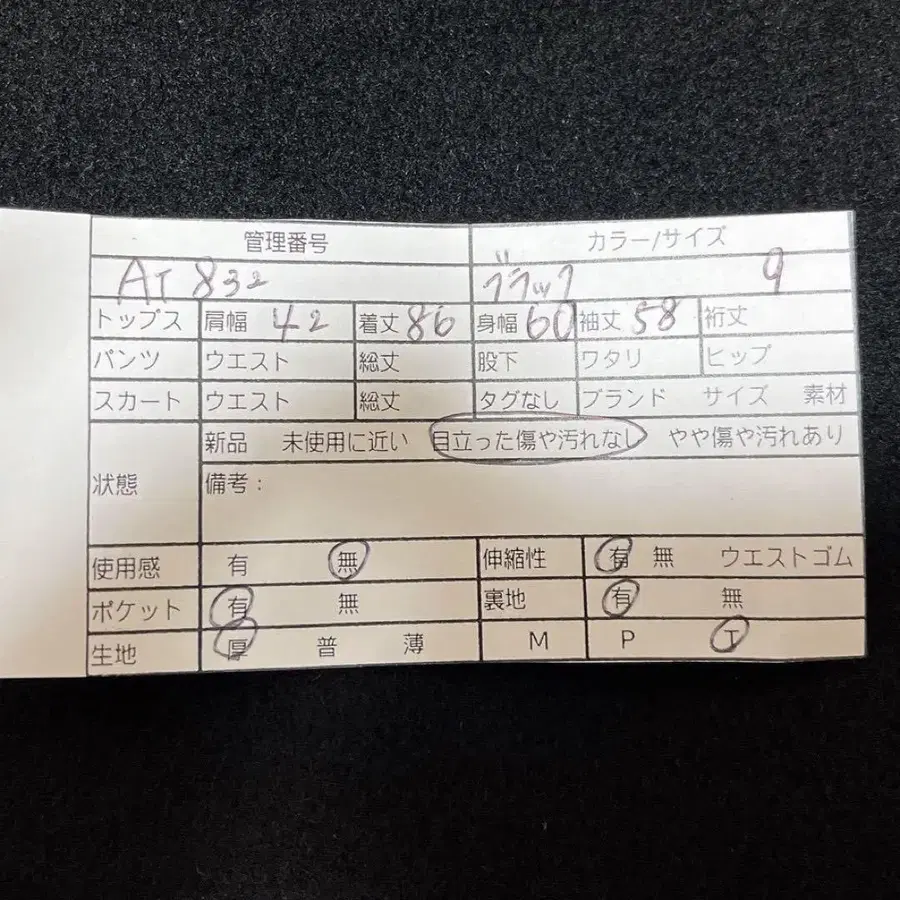 管理番号 カラー/サイズ
AT 832 ブラック 9
トップス 肩幅 42 着丈 86 身幅 60 袖丈 58 裄丈
パンツ ウエスト 総丈 股下 ワタリ ヒップ
スカート ウエスト 総丈 タグなし ブランド サイズ 素材
新品 未使用に近い 目立った傷や汚れなし やや傷や汚れあり
状態 備考:
使用感 有 無 伸縮性 有 無 ウエストゴム
ポケット 有 無 裏地 有 無
生地 厚 普 薄 M P T